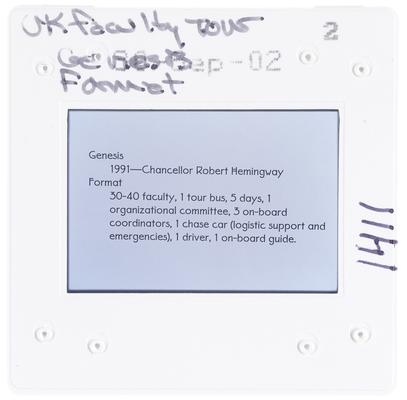 UK faculty Tour
2
Genesis
Sep-02
Format
Genesis
1991—Chancellor Robert Hemingway
Format
30-40 faculty, 1 tour bus, 5 days, 1
organizational committee, 3 on-board
coordinators, 1 chase car (logistic support and
emergencies), 1 driver, 1 on-board guide.
1411